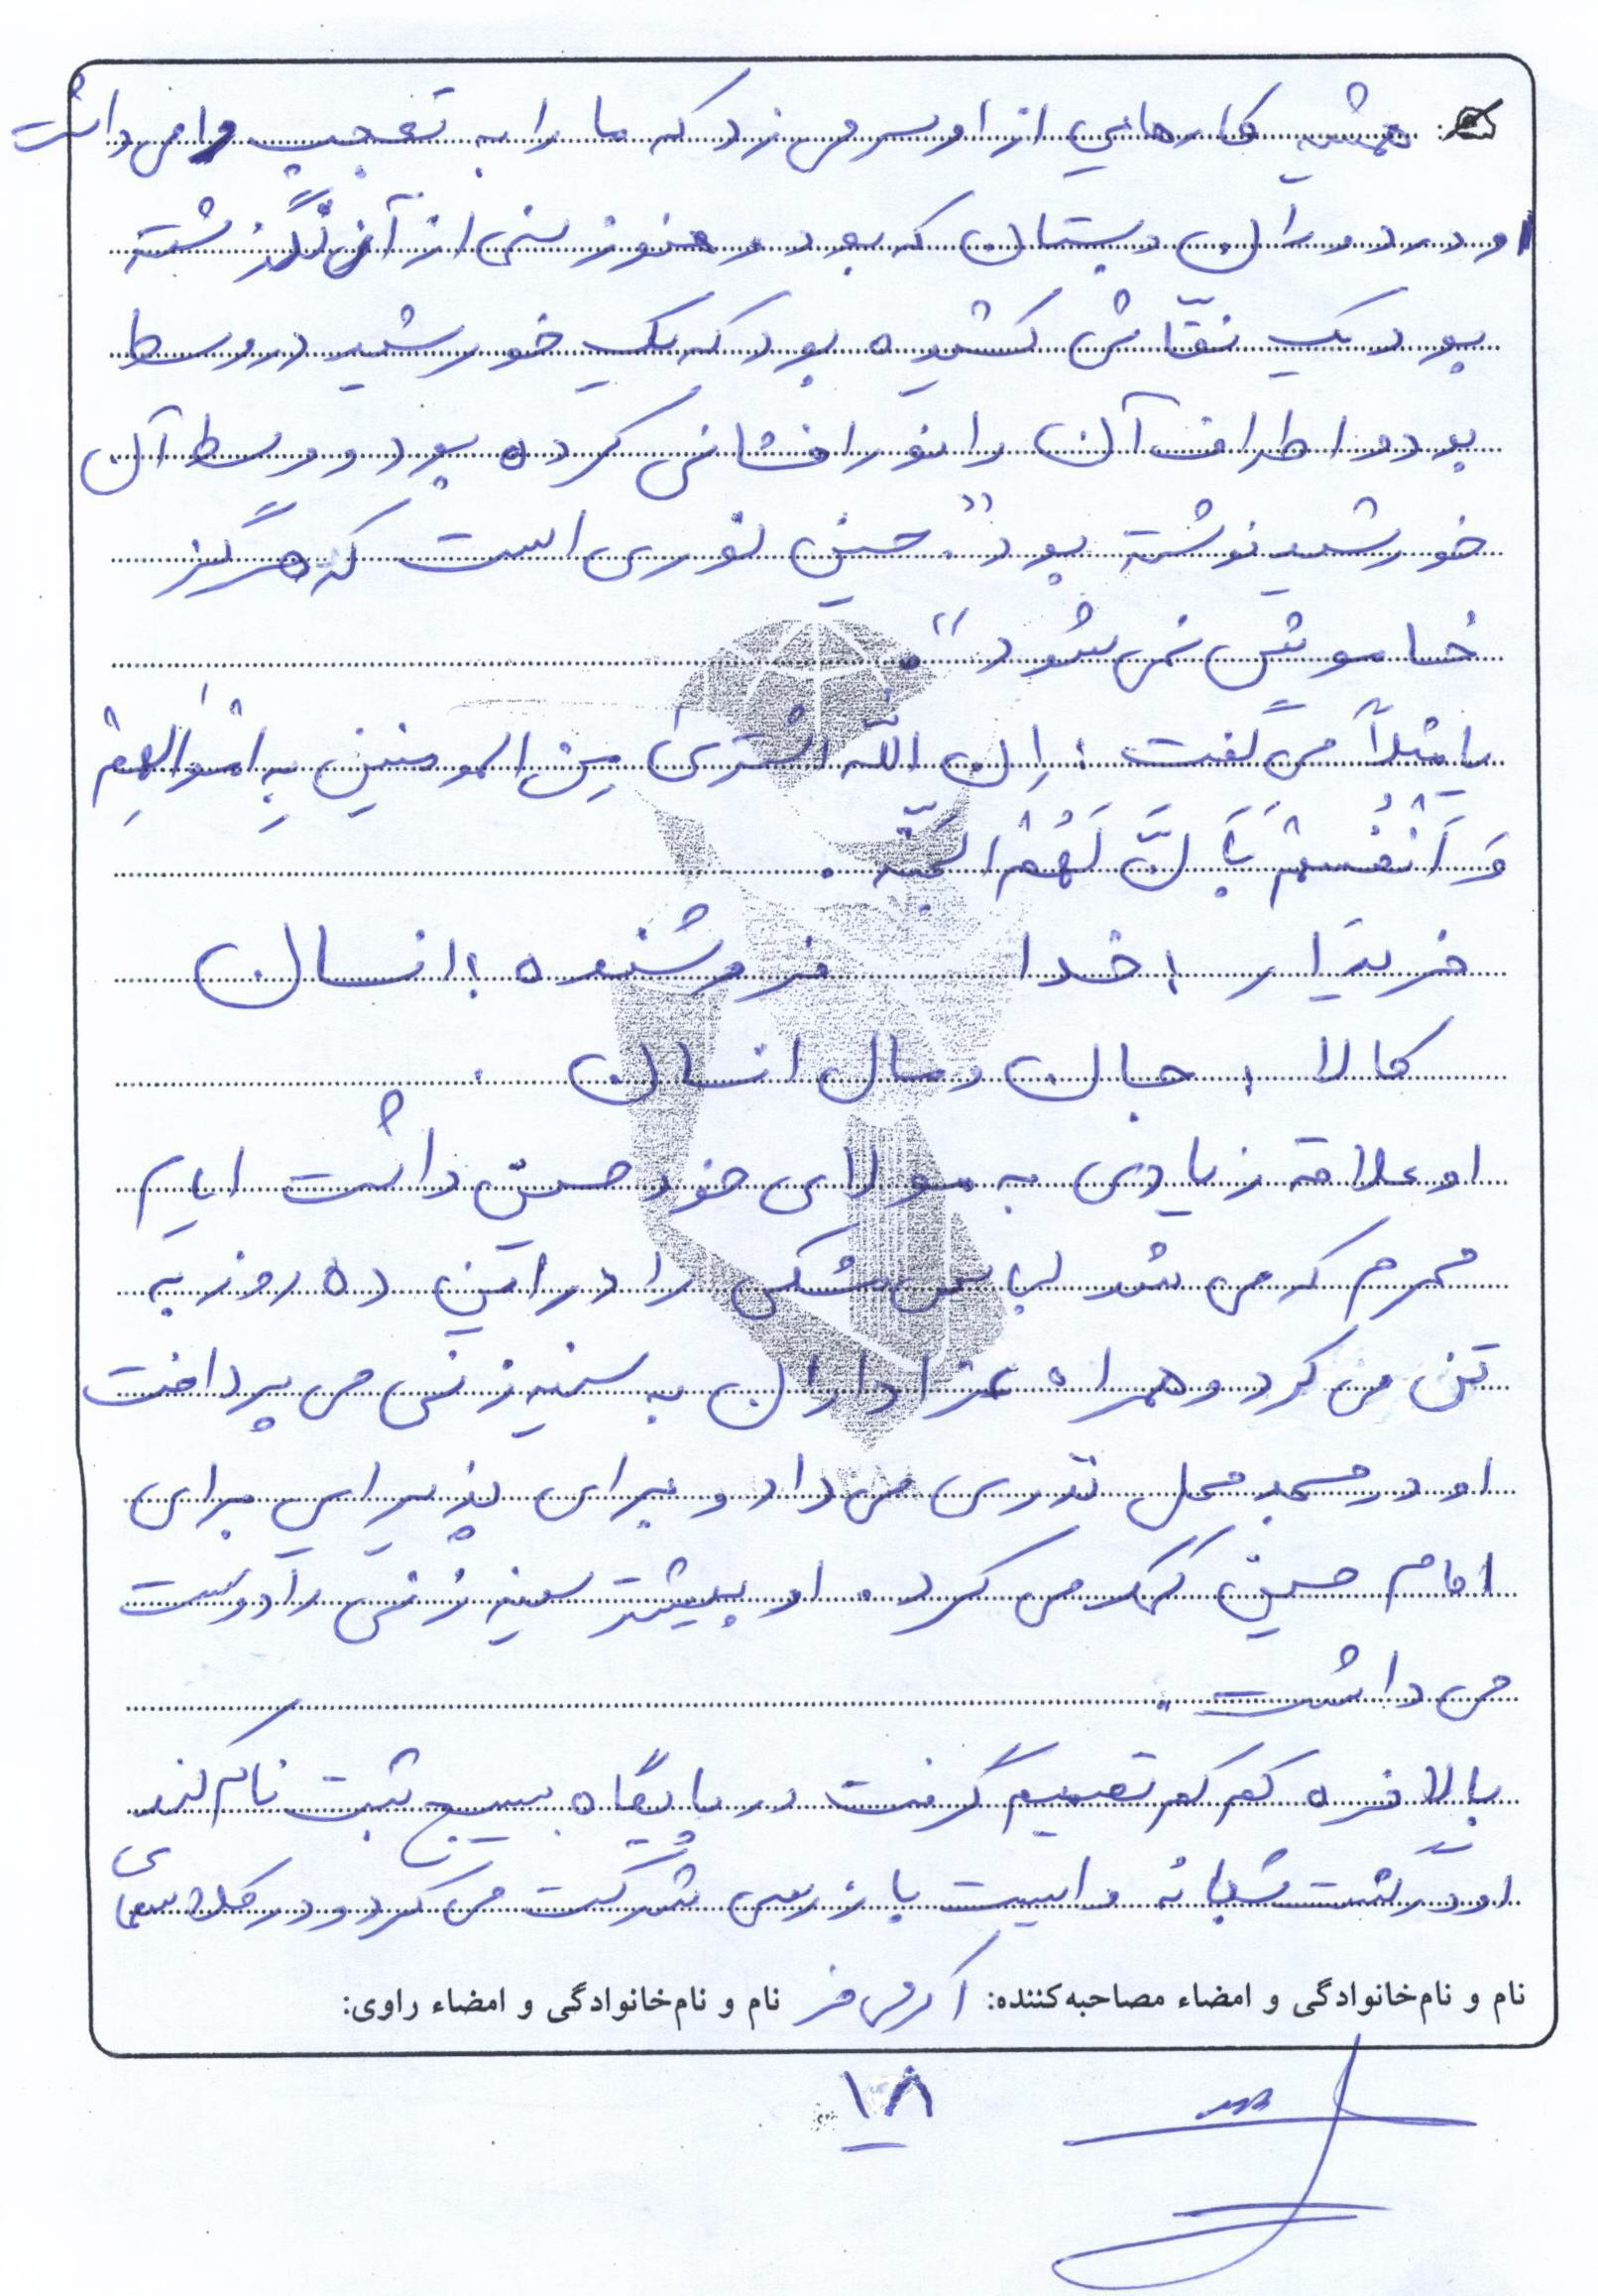 همیشه کارهایی از او سر می زد که ما را به تعجب وا می داشت
او در دوران دبستان که بود و هنوز سنی از آن نگذشته
بود یک نقّاشی کشیده بود که یک خورشید در وسط
بود و اطراف آن را نور افشانی کرده بود و وسط آن
خورشید نوشته بود "حسین نوری است که هرگز
خاموش نمی شود".
یا مثلاً می گفت : اِن اللّه اشتری مِن المومنین بِه امْوالهِمْ
وَ اَنْفُسهُمْ بِاَنَّ لَهُمْ الجَنّه .
خریدار : خدا فروشنده : انسان
کالا : جان و مال انسان .
او علاقه زیادی به مولای خود حسین داشت ایام
محرم که می شد لباس مشکی را در این ده روز به
تن می کرد و همراه عزاداران به سینه زنی می پرداخت
او در مسجد محل نذری می داد و برای پذیرایی برای
امام حسین کمک می کرد. او بیشتر سینه زنی را دوست
می داشت .
بالاخره کم کم تصمیم گرفت در پایگاه بسیج ثبت نام کند
او در گشت شبانه و ایست بازرسی شرکت می کرد و در کلاسهای
نام و نام‌خانوادگی و امضاء مصاحبه‌کننده: اکرمی فر نام و نام‌خانوادگی و امضاء راوی:
۱۸